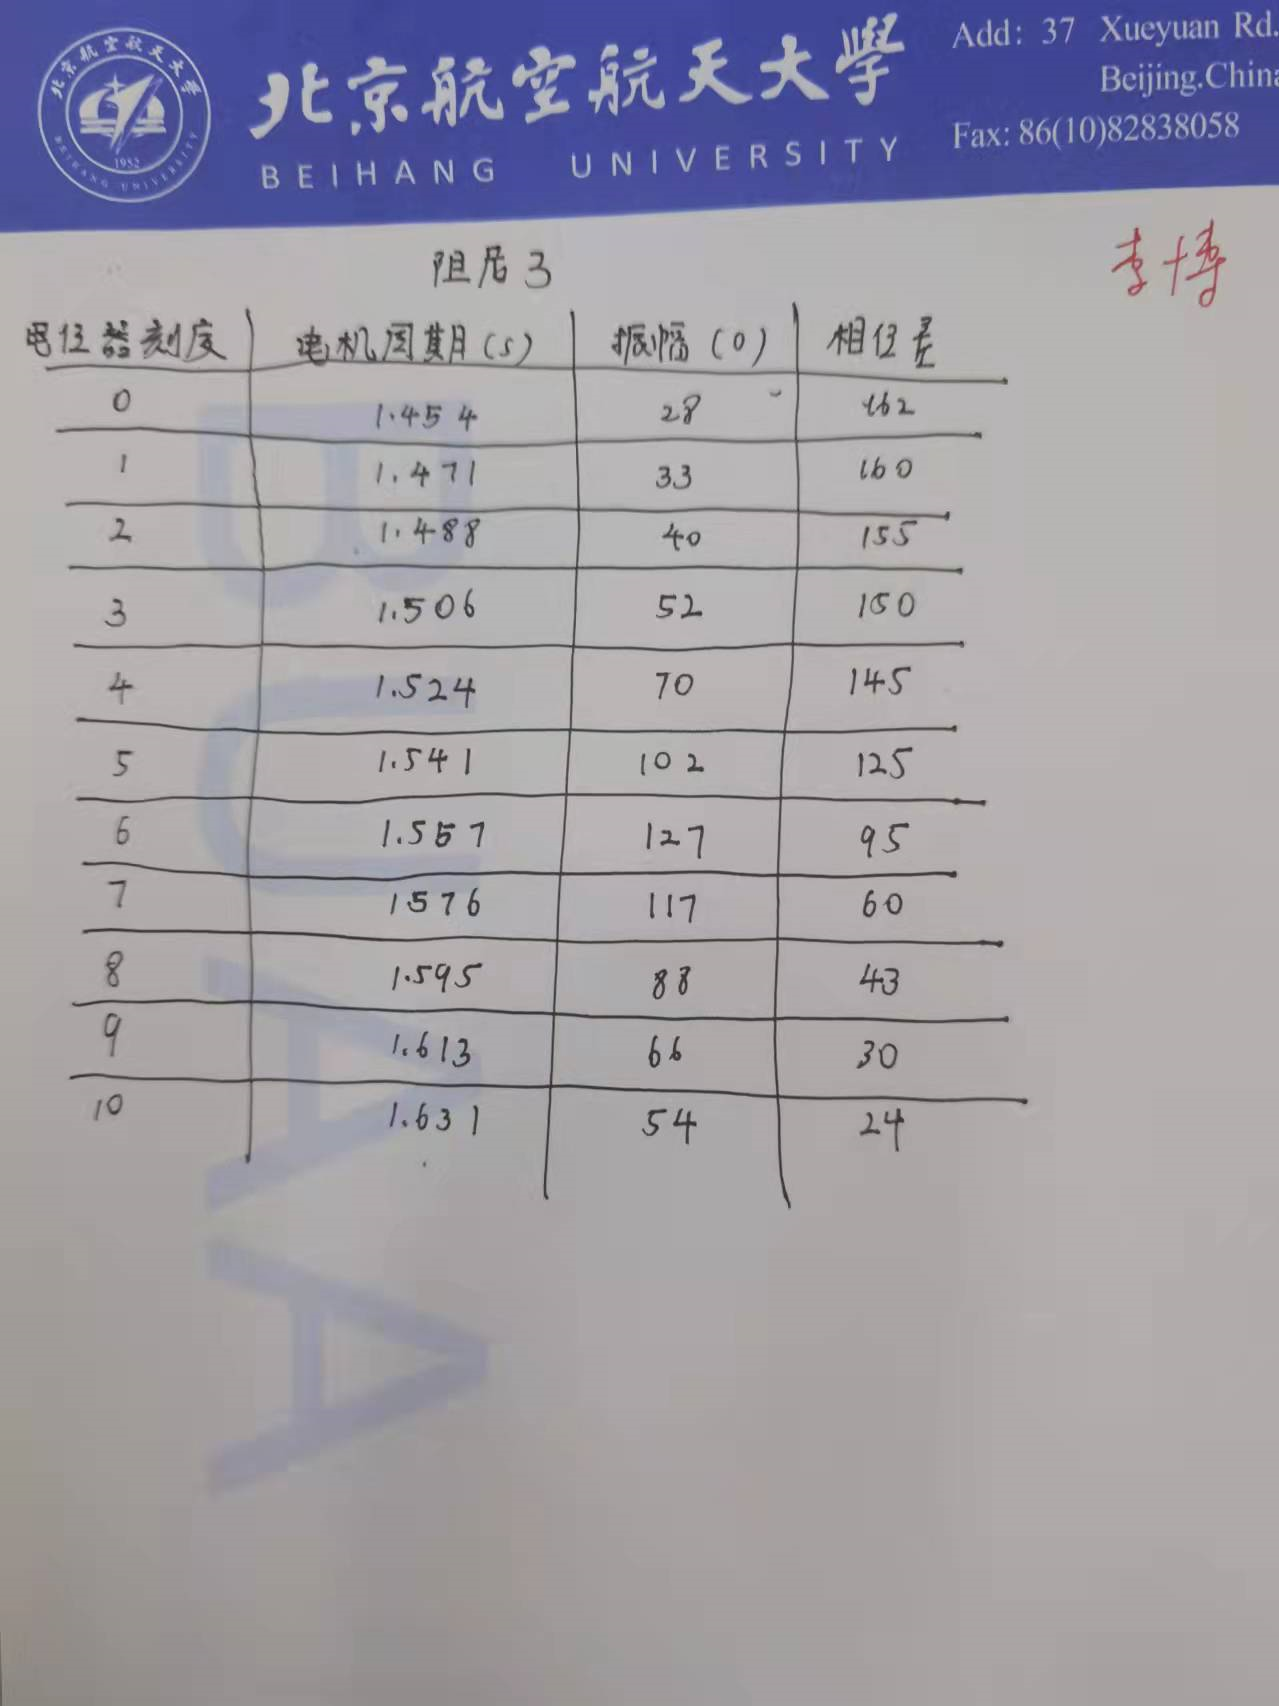 北京航空航天大学
1952
BEIHANG UNIVERSITY
北京航空航天大學
BEIHANG UNIVERSITY
Add: 37 Xueyuan Rd.
Beijing.China
Fax: 86(10)82838058
李博
阻尼3
电位器刻度 电机周期(s) 振幅(0) 相位差
0 1.454 28 162
1 1.471 33 160
2 1.488 40 155
3 1.506 52 150
4 1.524 70 145
5 1.541 102 125
6 1.557 127 95
7 1576 117 60
8 1.595 88 43
9 1.613 66 30
10 1.631 54 24
BUAA